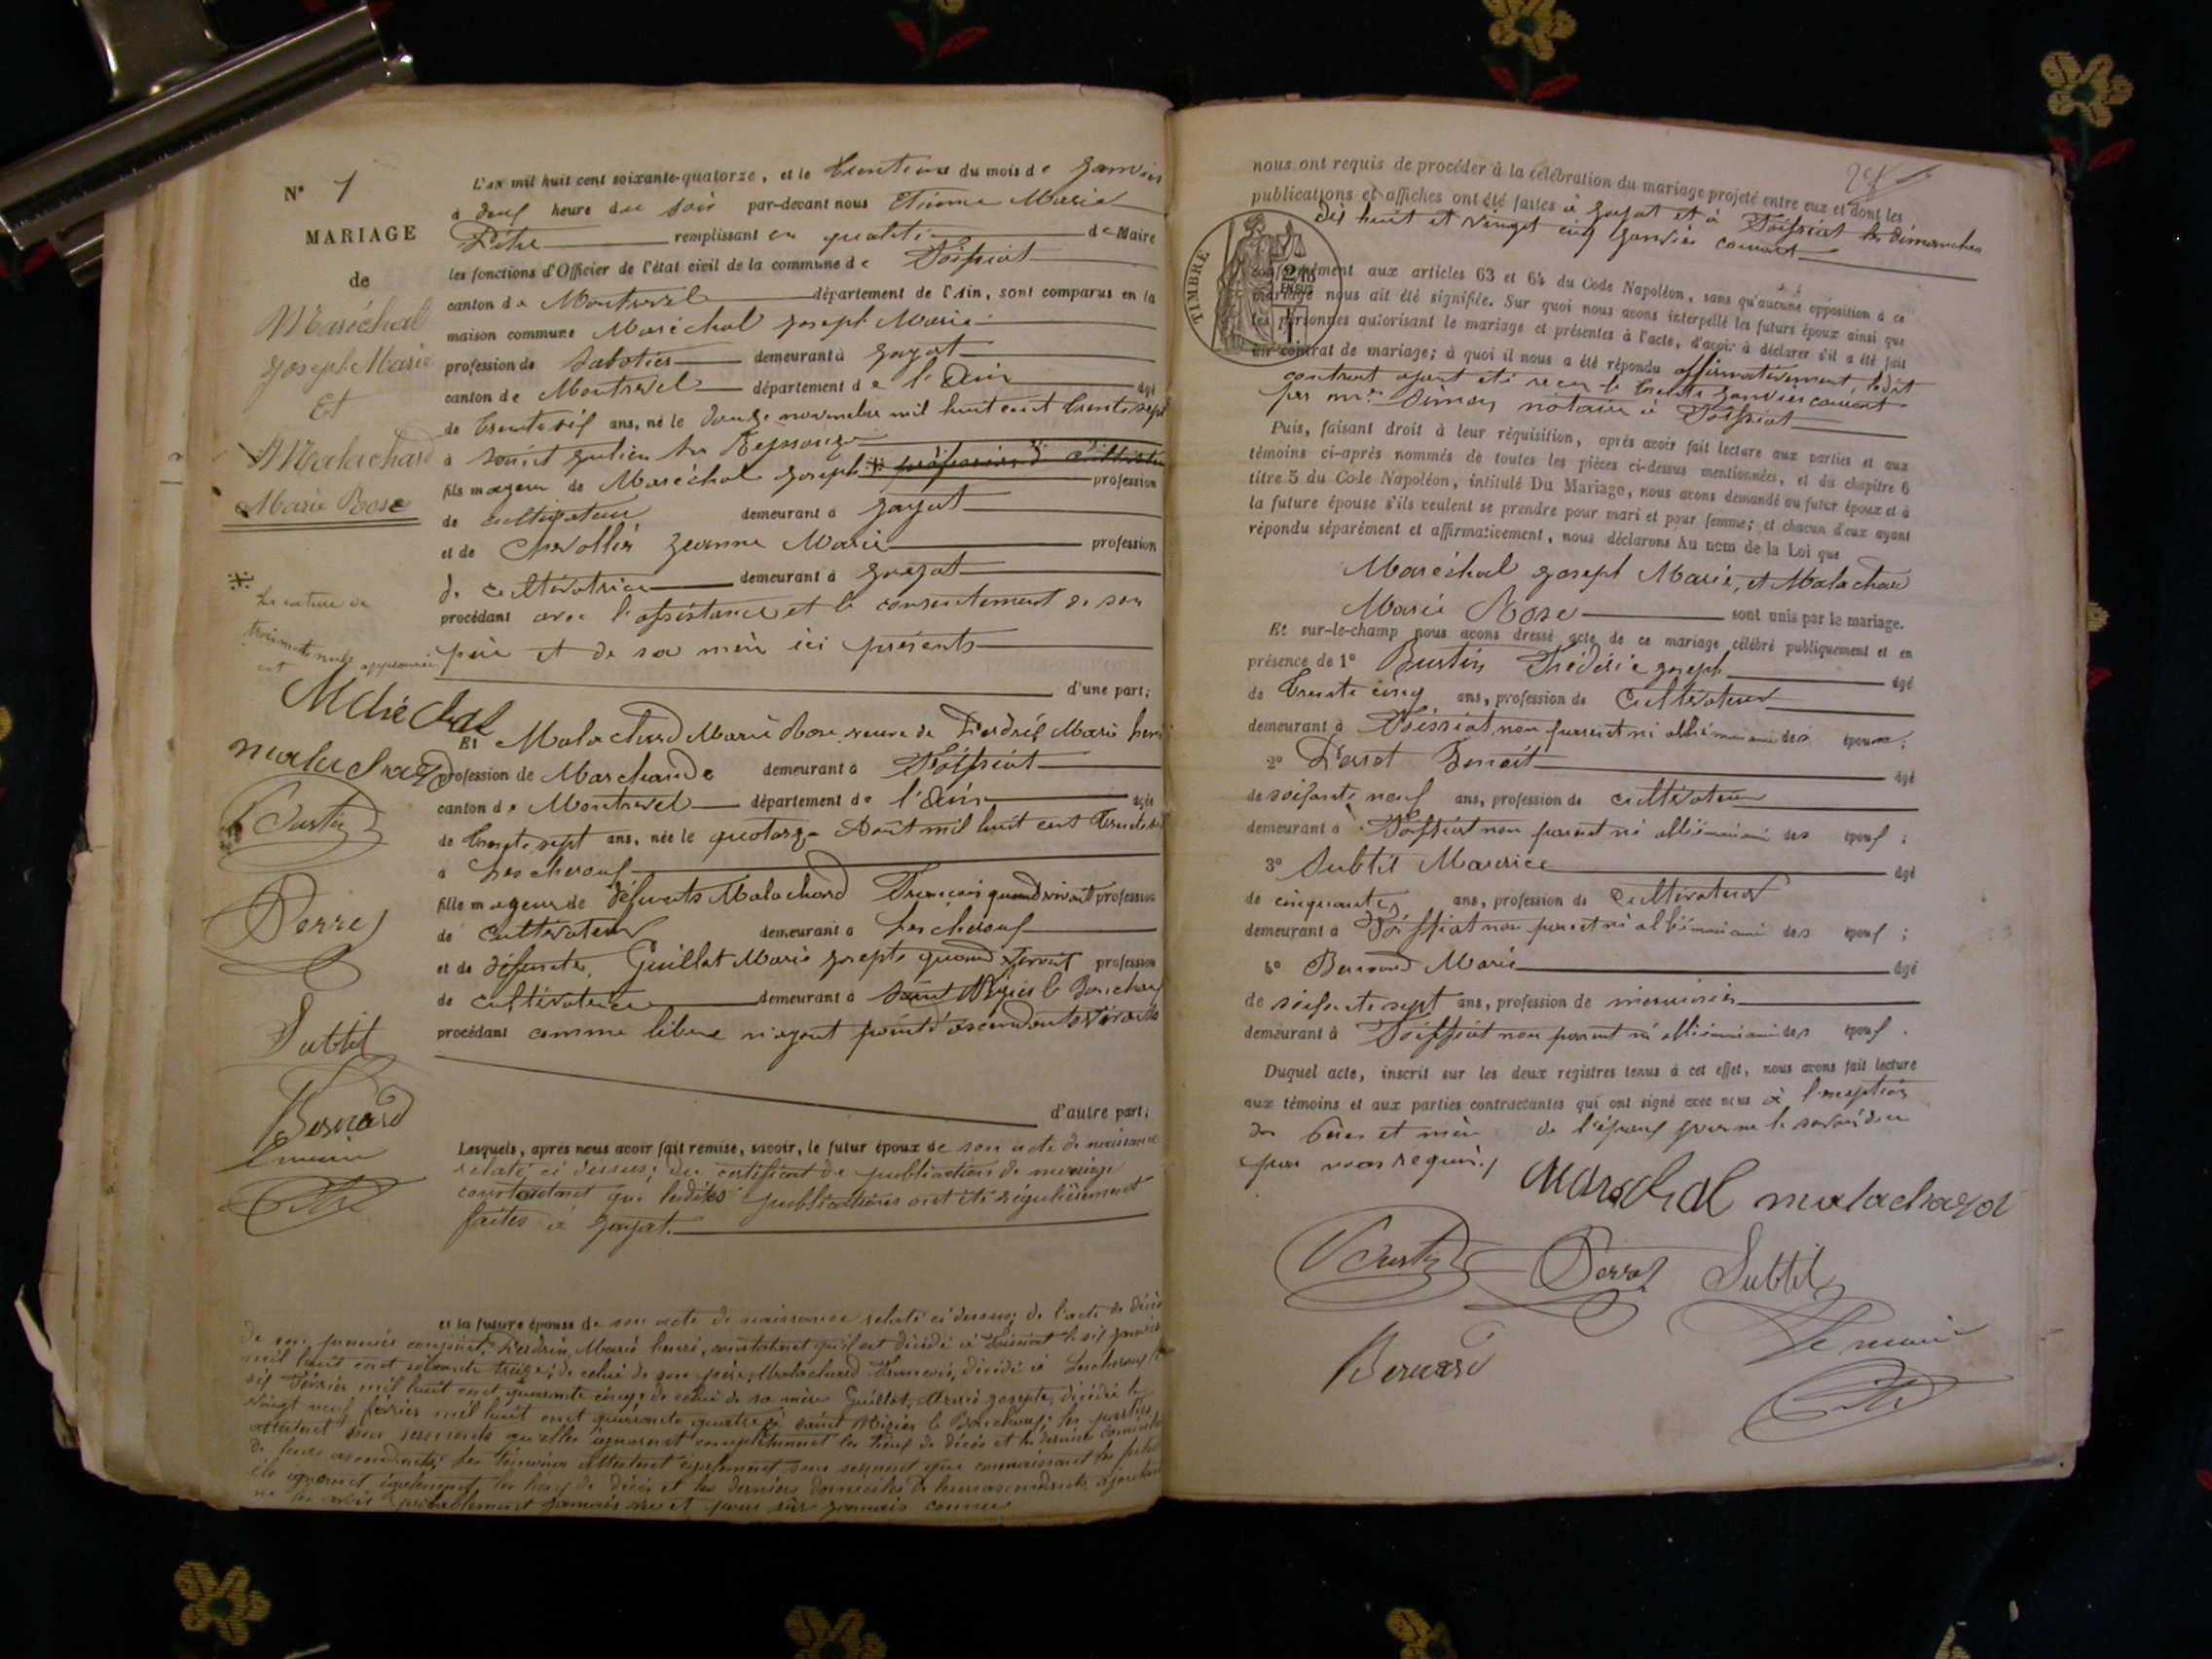 N° 1
MARIAGE
de
Maréchal
Joseph Marie
Et
Malachard
Marie Rose
L'an mil huit cent soixante-quatorze, et le trentième du mois de Janvier
à deux heure du soir par-devant nous Etienne Marie
remplissant en qualité de Maire
les fonctions d'Officier de l'état civil de la commune de Foissiat
canton de Montrevel département de l'Ain, sont comparus en la
maison commune Maréchal Joseph Marie
profession de Sabotier demeurant à Jayat
canton de Montrevel département de l'Ain âgé
de trente six ans, né le douze novembre mil huit cent trente sept
à Saint Julien sur Reyssouze
fils majeur de Maréchal Joseph profession
de cultivateur demeurant à Jayat
et de Chevallier Jeanne Marie profession
de cultivatrice demeurant à Jayat
procédant avec l'assistance et le consentement de son
père et de sa mère ici présents
d'une part;
La rature de
trois mots nuls approuvée
Maréchal
malachard
Perret
Subtil
Bernard
Le maire
Et Malachard Marie Rose veuve de Perdrix Marie henri
profession de Marchande demeurant à Foissiat
canton de Montrevel département de l'Ain âgée
de trente sept ans, née le quatorze Août mil huit cent trente six
à Lescheroux
fille majeure de défunts Malachard François quand vivait profession
de cultivateur demeurant à Lescheroux
et de défunte Guillot Marie Josepte quand vivait profession
de cultivatrice demeurant à Saint Nizier le Bouchoux
procédant comme libre n'ayant point d'ascendants vivants
d'autre part;
Lesquels, après nous avoir fait remise, savoir, le futur époux de son acte de naissance
relaté ci dessus; du certificat de publications de mariage
constatant que lesdites publications ont été régulièrement
faites à Jayat.
et la future épouse de son acte de naissance relaté ci dessus; de l'acte de décès
de son premier conjoint, Marie henri, constatant qu'il est décédé à Foissiat le six janvier
mil huit cent soixante treize; de celui de son père, Malachard François, décédé à Lescheroux le
six février mil huit cent quarante cinq; de celui de sa mère Guillot Marie Josepte, décédée le
vingt neuf février mil huit cent quarante quatre à saint Nizier le Bouchoux; les parties
attestent sous serment qu'elles ignorent complètement les lieux de décès et les derniers domiciles
de leurs ascendants; les témoins attestent également sous serment que connaissant les
ils ignorent également les lieux de décès et les derniers domiciles de leurs ascendants
ne les avoir probablement jamais vus et pour sûr jamais connus
nous ont requis de procéder à la célébration du mariage projeté entre eux et dont les
publications et affiches ont été faites à Jayat et à Foissiat les dimanches
dix huit et vingt cinq Janvier courant
TIMBRE
conformément aux articles 63 et 64 du Code Napoléon, sans qu'aucune opposition à ce
mariage nous ait été signifiée. Sur quoi nous avons interpellé les futurs époux ainsi que
les personnes autorisant le mariage et présentes à l'acte, d'avoir à déclarer s'il a été fait
un contrat de mariage; à quoi il nous a été répondu affirmativement, ledit
contrat ayant été reçu le trente Janvier courant
par me notaire à Foissiat
Puis, faisant droit à leur réquisition, après avoir fait lecture aux parties et aux
témoins ci-après nommés de toutes les pièces ci-dessus mentionnées, et du chapitre 6
titre 5 du Code Napoléon, intitulé Du Mariage, nous avons demandé au futur époux et à
la future épouse s'ils veulent se prendre pour mari et pour femme; et chacun d'eux ayant
répondu séparément et affirmativement, nous déclarons Au nom de la Loi que
Maréchal Joseph Marie, et Malachard
Marie Rose sont unis par le mariage.
Et sur-le-champ nous avons dressé acte de ce mariage célébré publiquement et en
présence de 1° Joseph âgé
de trente cinq ans, profession de Cultivateur
demeurant à Foissiat, non parent ni allié mais ami des époux;
2° Perret Benoit âgé
de soixante neuf ans, profession de cultivateur
demeurant à Foissiat non parent ni allié mais ami des époux;
3° Subtil Maurice âgé
de cinquante ans, profession de Cultivateur
demeurant à Foissiat non parent ni allié mais ami des époux;
4° Bernard Marie âgé
de soixante sept ans, profession de menuisier
demeurant à Foissiat non parent ni allié mais ami des époux.
Duquel acte, inscrit sur les deux registres tenus à cet effet, nous avons fait lecture
aux témoins et aux parties contractantes qui ont signé avec nous à l'exception
des Père et mère de l'époux pour ne le savoir de ce
par nous requis.
Maréchal malachard
Perret Subtil
Bernard Le maire